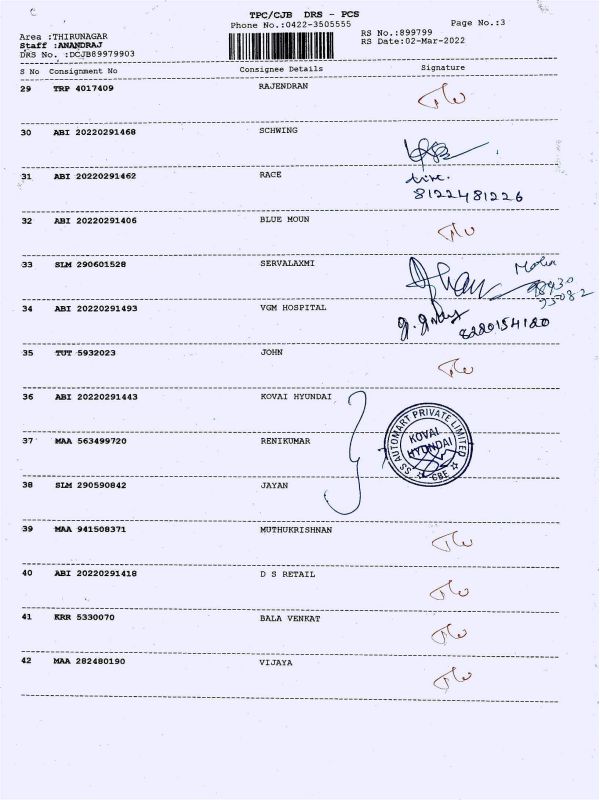 TPC/CJB DRS - PCS
Phone No.:0422-3505555
Page No.:3
Area :THIRUNAGAR
RS No.:899799
Staff :ANANDRAJ
RS Date:02-Mar-2022
DRS No. :DCJB89979903
S No Consignment No Consignee Details Signature
29 TRP 4017409 RAJENDRAN
30 ABI 20220291468 SCHWING
31 ABI 20220291462 RACE
8122481226
32 ABI 20220291406 BLUE MOUN
33 SLM 290601528 SERVALAXMI
34 ABI 20220291493 VGM HOSPITAL
8220154120
35 TUT 5932023 JOHN
36 ABI 20220291443 KOVAI HYUNDAI
37 MAA 563499720 RENIKUMAR
SS AUTOMART PRIVATE LIMITED
KOVAI
HYUNDAI
CBE
38 SLM 290590842 JAYAN
39 MAA 941508371 MUTHUKRISHNAN
40 ABI 20220291418 D S RETAIL
41 KRR 5330070 BALA VENKAT
42 MAA 282480190 VIJAYA